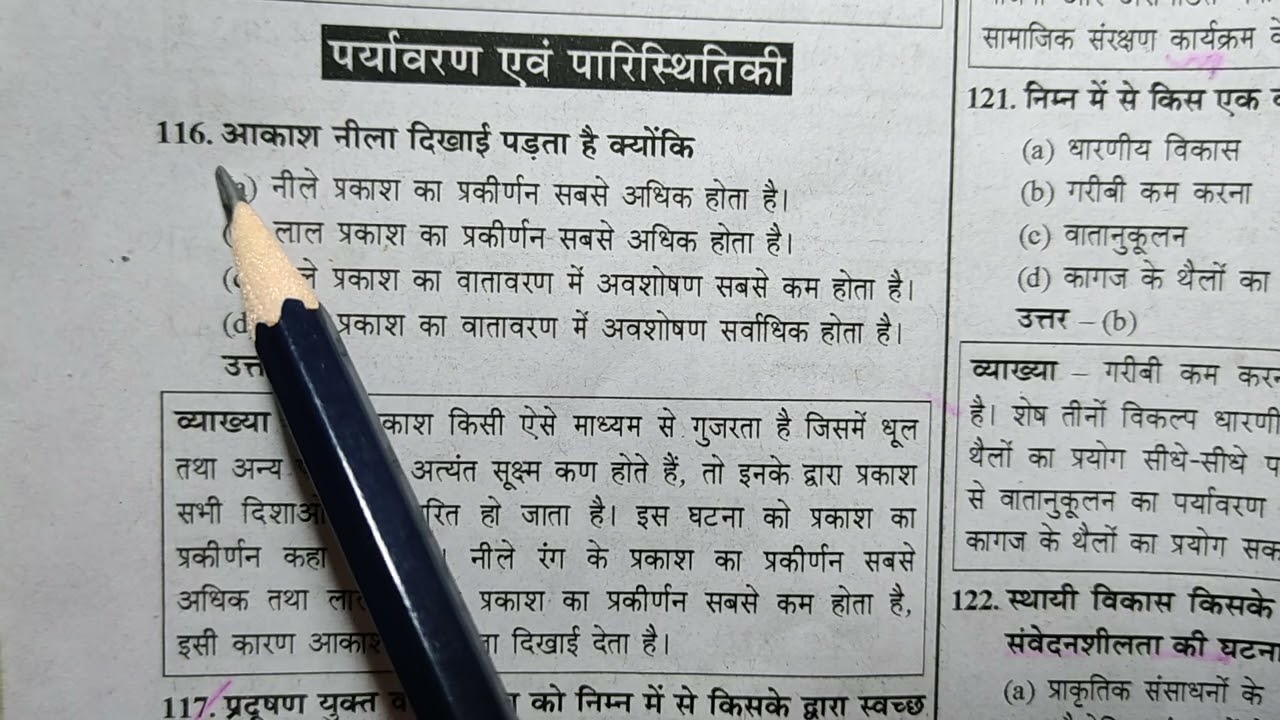 पर्यावरण एवं पारिस्थितिकी
116. आकाश नीला दिखाई पड़ता है क्योंकि
नीले प्रकाश का प्रकीर्णन सबसे अधिक होता है।
लाल प्रकाश का प्रकीर्णन सबसे अधिक होता है।
प्रकाश का वातावरण में अवशोषण सबसे कम होता है।
(d) प्रकाश का वातावरण में अवशोषण सर्वाधिक होता है।
व्याख्या किसी ऐसे माध्यम से गुजरता है जिसमें धूल
तथा अन्य अत्यंत सूक्ष्म कण होते हैं, तो इनके द्वारा प्रकाश
सभी हो जाता है। इस घटना को प्रकाश का
प्रकीर्णन कहा नीले रंग के प्रकाश का प्रकीर्णन सबसे
अधिक तथा प्रकाश का प्रकीर्णन सबसे कम होता है,
इसी कारण दिखाई देता है।
117. प्रदूषण युक्त को निम्न में से किसके द्वारा स्वच्छ
सामाजिक संरक्षण कार्यक्रम
121. निम्न में से किस एक
(a) धारणीय विकास
(b) गरीबी कम करना
(c) वातानुकूलन
(d) कागज के थैलों का
उत्तर – (b)
व्याख्या – गरीबी कम
है। शेष तीनों विकल्प धारणी
थैलों का प्रयोग सीधे-सीधे
से वातानुकूलन का पर्यावरण
कागज के थैलों का प्रयोग
122. स्थायी विकास किसके
संवेदनशीलता की घटना
(a) प्राकृतिक संसाधनों के